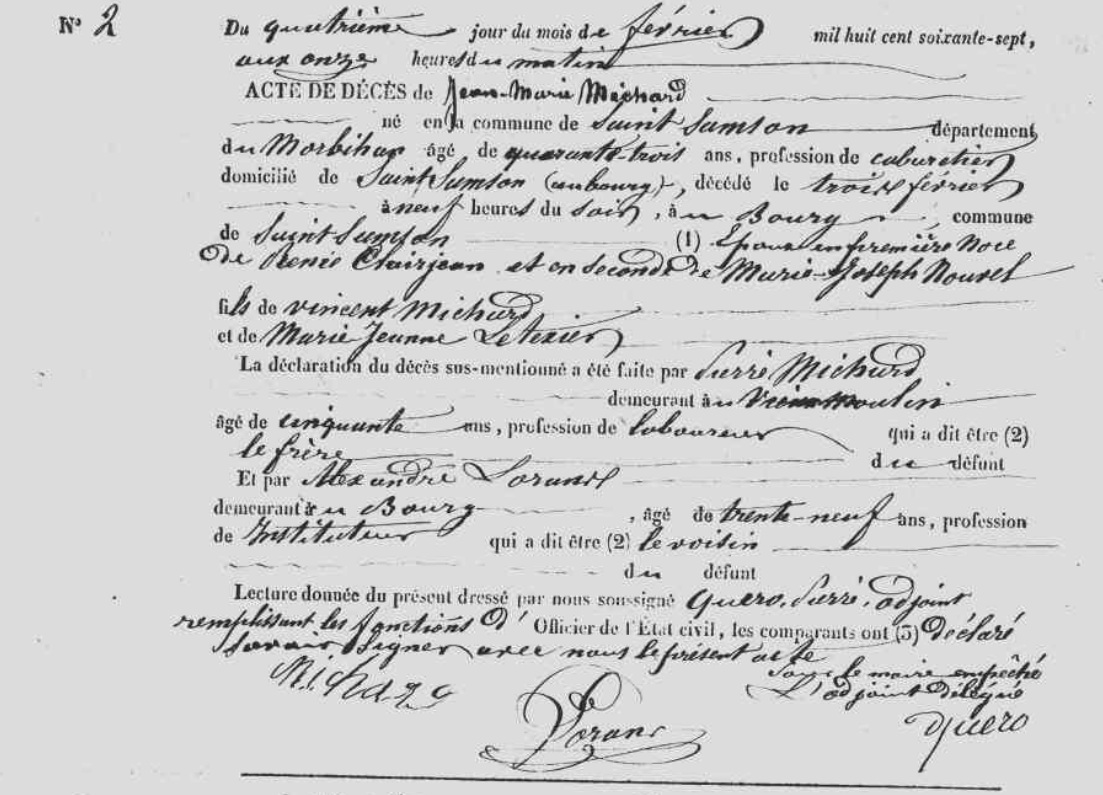 N° 2
Du quatrième jour du mois de février mil huit cent soixante-sept,
aux onze heures du matin
ACTE DE DÉCÈS de Jean-Marie Michard
né en la commune de Saint Samson département
du Morbihan âgé de quarante-trois ans, profession de cabaretier
domicilié de Saint Samson (au bourg), décédé le trois février
à neuf heures du soir, à u Bourg commune
de Saint Samson (1) Epoux en première Noce
De Renée Clairjean et en seconde De Marie-Joseph Nouvel
fils de vincent Michard
et de Marie Jeanne Letexier
La déclaration du décès sus-mentionné a été faite par Pierre Michard
demeurant à u Vieux moulin
âgé de cinquante ans, profession de laboureur qui a dit être (2)
le frère du défunt
Et par Alexandre Lorans
demeurant à u Bourg, âgé de trente-neuf ans, profession
de Instituteur qui a dit être (2) le voisin
du défunt
Lecture donnée du présent dressé par nous soussigné Quero, Pierre, adjoint
remplissant les fonctions D' Officier de l'État civil, les comparants ont (3) Déclaré
savoir signer avec nous le présent acte
Pour le maire empêché
L'adjoint Délégué
Lorans
Quero